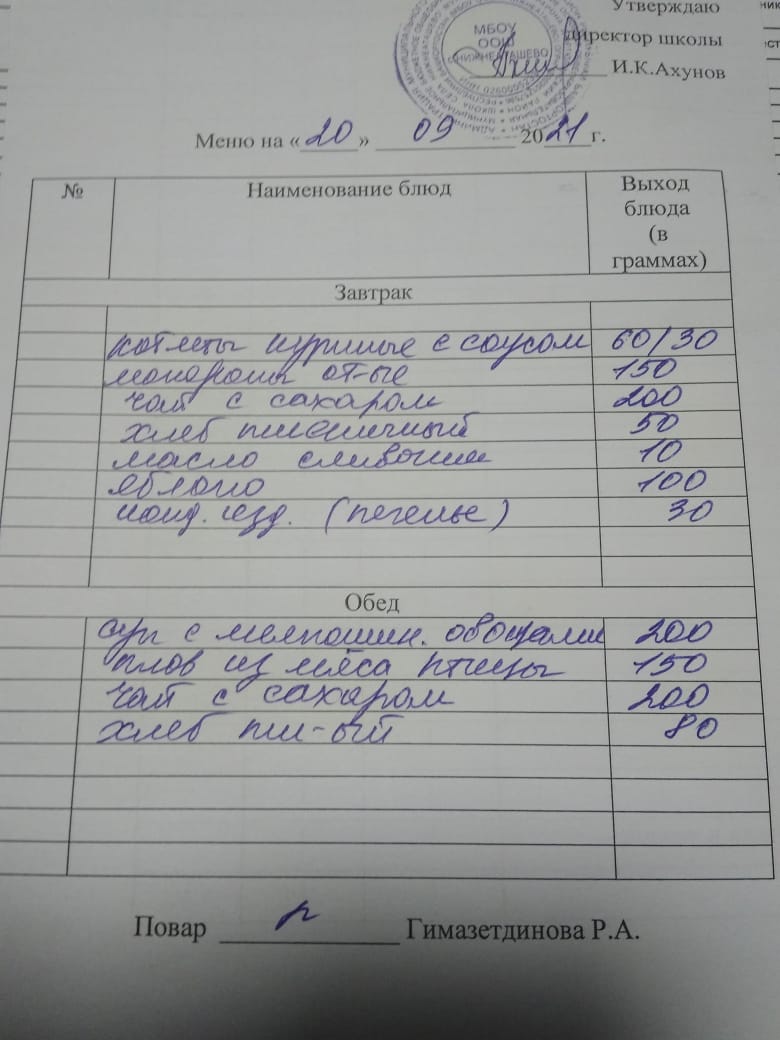 Утверждаю
директор школы
И.К.Ахунов
МБОУ
ООШ
с.НИЖНЕТАШЕВО
Меню на «20» 09 2021г.
№ Наименование блюд Выход
блюда
(в
граммах)
Завтрак
котлеты куриные с соусом 60/30
макароны от-ые 150
чай с сахаром 200
хлеб пшеничный 50
масло сливочное 10
яблоко 100
конд. изд. (печенье) 30
Обед
суп с мелкошин. овощами 200
плов из мяса птицы 150
чай с сахаром 200
хлеб пш-ый 80
Повар Гимазетдинова Р.А.